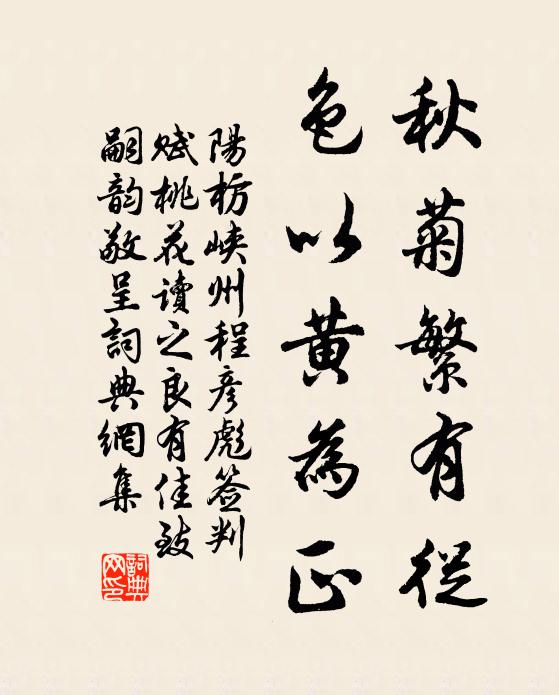 秋菊繁有從
色以黃為正
陽枋峽州程彥彪簽判
賦桃花讀之良有佳致
嗣韵敬呈詞典網集
詞典
网印